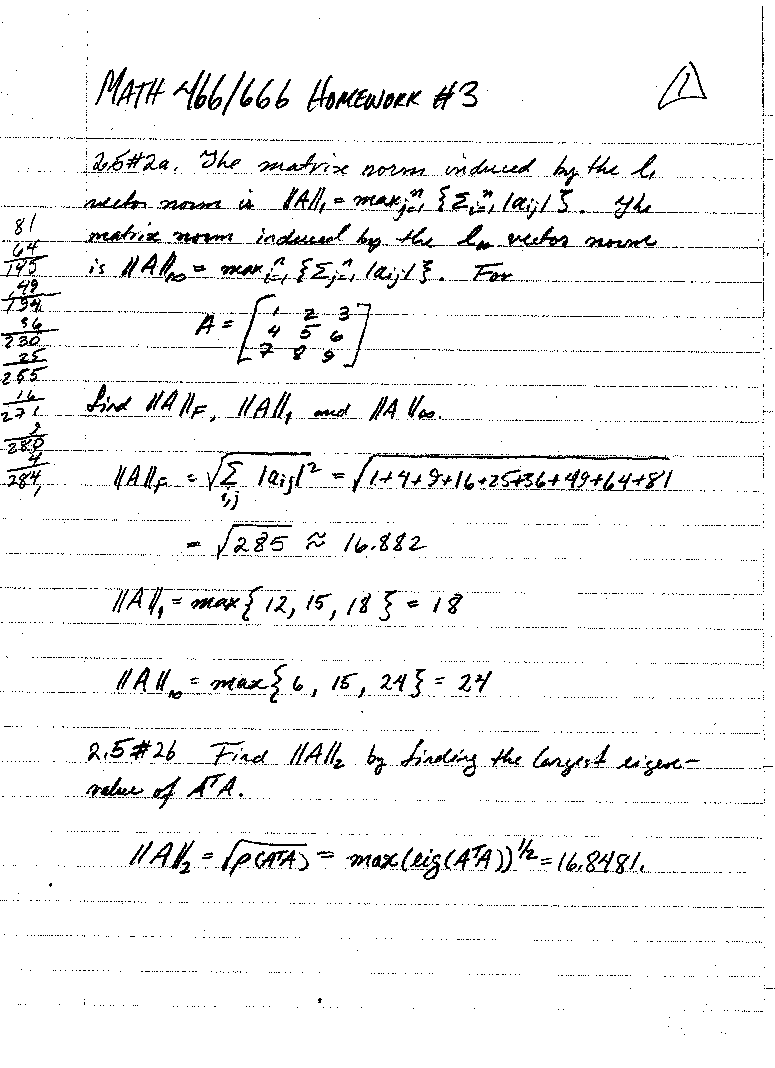 MATH 466/666 HOMEWORK #3
1
2.5#2a. The matrix norm induced by the l₁
vector norm is ||A||₁ = max_{j=1}^n { Σ_{i=1}^n |a_{ij}| }. The
matrix norm induced by the l_∞ vector norm
is ||A||_∞ = max_{i=1}^n { Σ_{j=1}^n |a_{ij}| }. For
A = [ 1 2 3
4 5 6
7 8 9 ]
find ||A||_F, ||A||₁ and ||A||_∞.
||A||_F = √(Σ_{i,j} |a_{ij}|²) = √(1+4+9+16+25+36+49+64+81)
= √285 ≈ 16.882
||A||₁ = max{ 12, 15, 18 } = 18
||A||_∞ = max{ 6, 15, 24 } = 24
2.5#2b Find ||A||₂ by finding the largest eigen-
value of AᵀA.
||A||₂ = √(ρ(AᵀA)) = max(eig(AᵀA))^{1/2} = 16.8481.
81
64
145
49
194
36
230
25
255
16
271
280
4
284